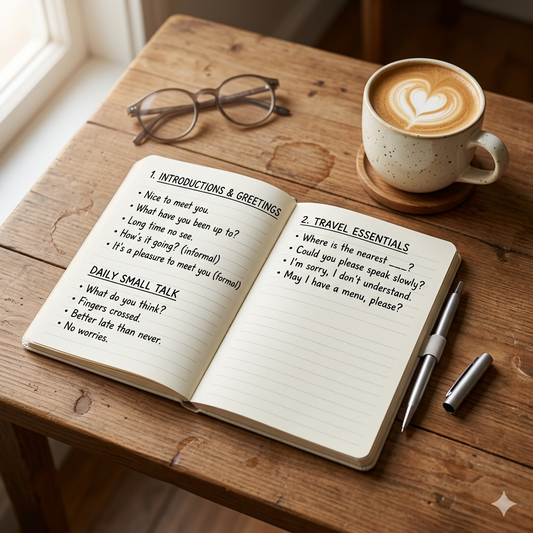 1. INTRODUCTIONS & GREETINGS
• Nice to meet you.
• What have you been up to?
• Long time no see.
• How's it going? (informal)
• It's a pleasure to meet you (formal)
DAILY SMALL TALK
• What do you think?
• Fingers crossed.
• Better late than never.
• No worries.
2. TRAVEL ESSENTIALS
• Where is the nearest ___?
• Could you please speak slowly?
• I'm sorry, I don't understand.
• May I have a menu, please?